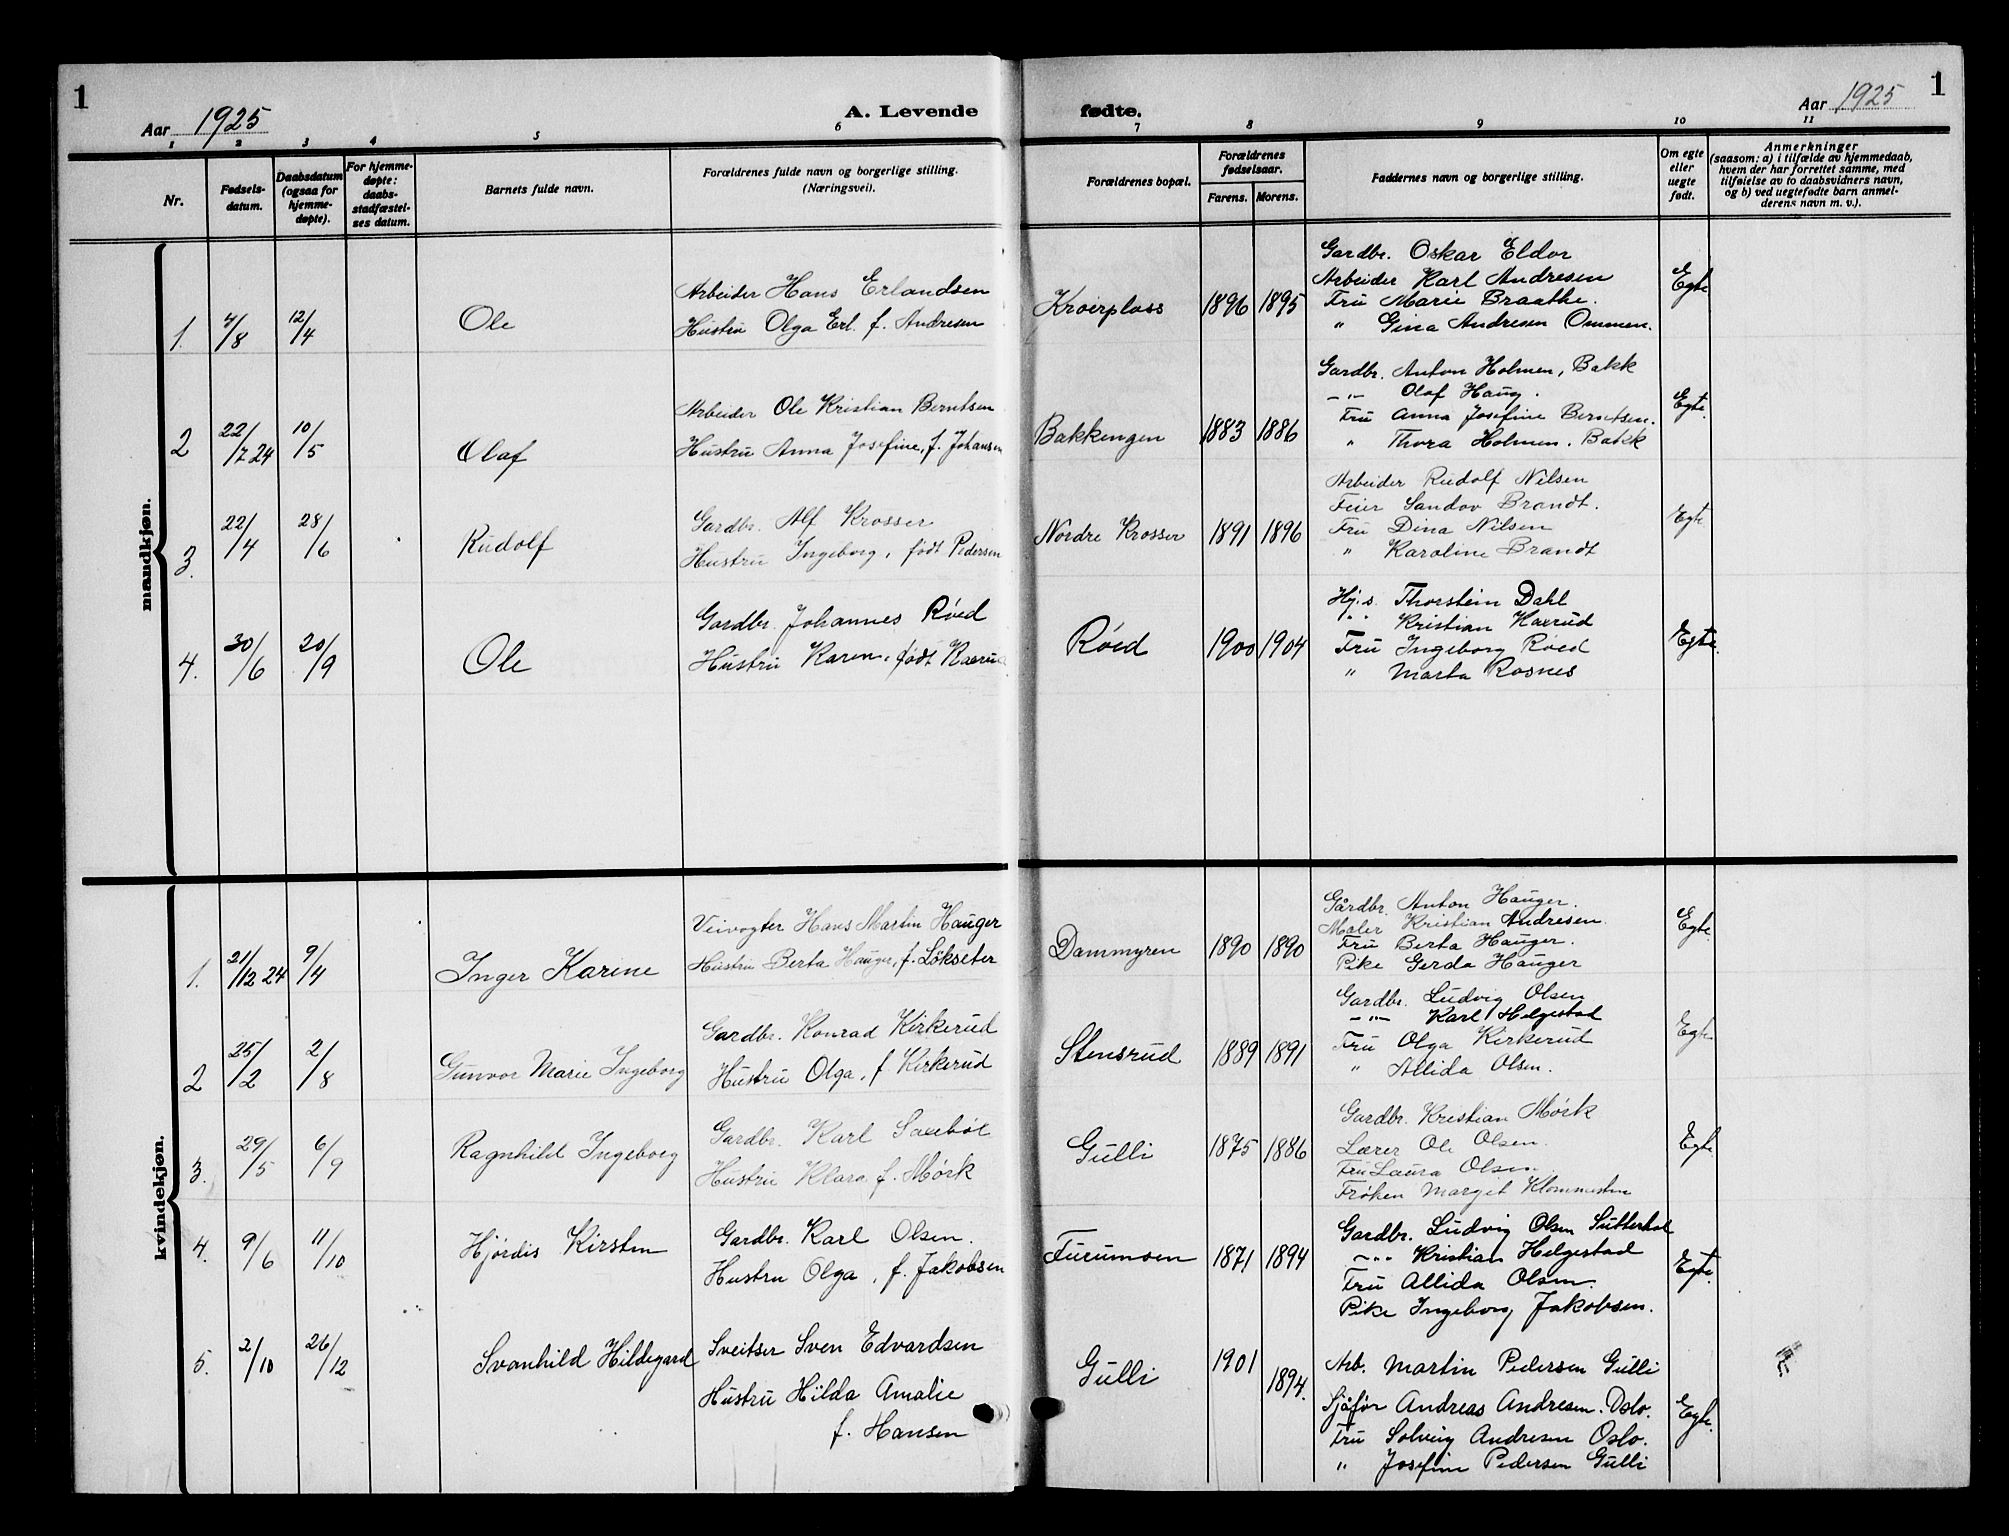 1
Aar 1925
A. Levende fødte.
Aar 1925
1
1 2 3 4 5 6 7 8 9 10 11
Nr.
Fødsels-
datum.
Daabsdatum
(ogsaa for
hjemme-
døpte).
For hjemme-
døpte:
daabs-
stadfæstel-
ses datum.
Barnets fulde navn.
Forældrenes fulde navn og borgerlige stilling.
(Næringsvei).
Forældrenes bopæl.
Forældrenes
fødselsaar.
Farens. Morens.
Faddernes navn og borgerlige stilling.
Om egte
eller
uegte
født.
Anmerkninger
(saasom: a) i tilfælde av hjemmedaab,
hvem der har forrettet samme, med
tilføielse av to daabsvidners navn,
og b) ved uegtefødte barn anmel-
derens navn m. v.).
mandkjøn.
1. /8 12/4 Ole
Arbeider Hans Erlandsen
Hustru Olga Erl. f. Andresen
Kroerplass 1896 1895
Gardbr. Oskar Eldor
Arbeider Karl Andresen
Fru Marie Braathe.
" Gina Andresen Ommen.
Egte
2 22/7 24 10/5 Olaf
Arbeider Ole Kristian Berntsen
Hustru Anna Josefine, f. Johansen
Bakkengen 1883 1886
Gardbr. Anton Holmen, Bakk
-"- Olaf Haug.
Fru Anna Josefine Berntsen.
" Thora Holmen. Bakk
Egte.
3. 22/4 28/6 Rudolf
Gardbr. Alf Krosser
Hustru Ingeborg, født Pedersen
Nordre Krosser 1891 1896
Arbeider Rudolf Nilsen
Feier Sandov Brandt.
Fru Dina Nilsen
" Karoline Brandt
Egte
4. 30/6 20/9 Ole
Gardbr. Johannes Røed
Hustru Karen, født Kaxrud
Røed 1900 1904
Hj.s. Thorstein Dahl
" Kristian Kaxrud
Fru Ingeborg Røed
" Marta Rosnes
Egte.
kvindekjøn.
1. 21/12 24 9/4 Inger Karine
Veivogter Hans Martin Hauger
Hustru Berta Hauger, f. Løkseter
Dammyren 1890 1890
Gårdbr. Anton Hauger.
Maler Kristian Andresen.
Fru Berta Hauger.
Pike Gerda Hauger
Egte.
2 25/2 2/8 Gunvor Marie Ingeborg
Gardbr. Konrad Kirkerud
Hustru Olga, f. Kirkerud
Stensrud 1889 1891
Gardbr. Ludvig Olsen
-"- Karl Helgestad
Fru Olga Kirkerud
" Allida Olsen.
Egte.
3. 29/5 6/9 Ragnhild Ingeborg
Gardbr. Karl Saxebøl
Hustru Klara f. Mørk
Gulli 1875 1886
Gardbr. Kristian Mørk
Lærer Ole Olsen.
Fru Laura Olsen.
Frøken Margit Klommesten
Egte.
4. 9/6 11/10 Hjørdis Kirsten
Gardbr. Karl Olsen.
Hustru Olga, f. Jakobsen
Furumoen 1871 1894
Gardbr. Ludvig Olsen
-"- Kristian Helgestad
Fru Allida Olsen.
Pike Ingeborg Jakobsen.
Egte.
5. 2/10 26/12 Svanhild Hildegard
Sveitser Sven Edvardsen
Hustru Hilda Amalie
f. Hansen
Gulli 1901 1894.
Arb. Martin Pedersen Gulli
Sjåfør Andreas Andresen. Oslo.
Fru Solveig Andresen Oslo.
" Josefine Pedersen Gulli
Egte.